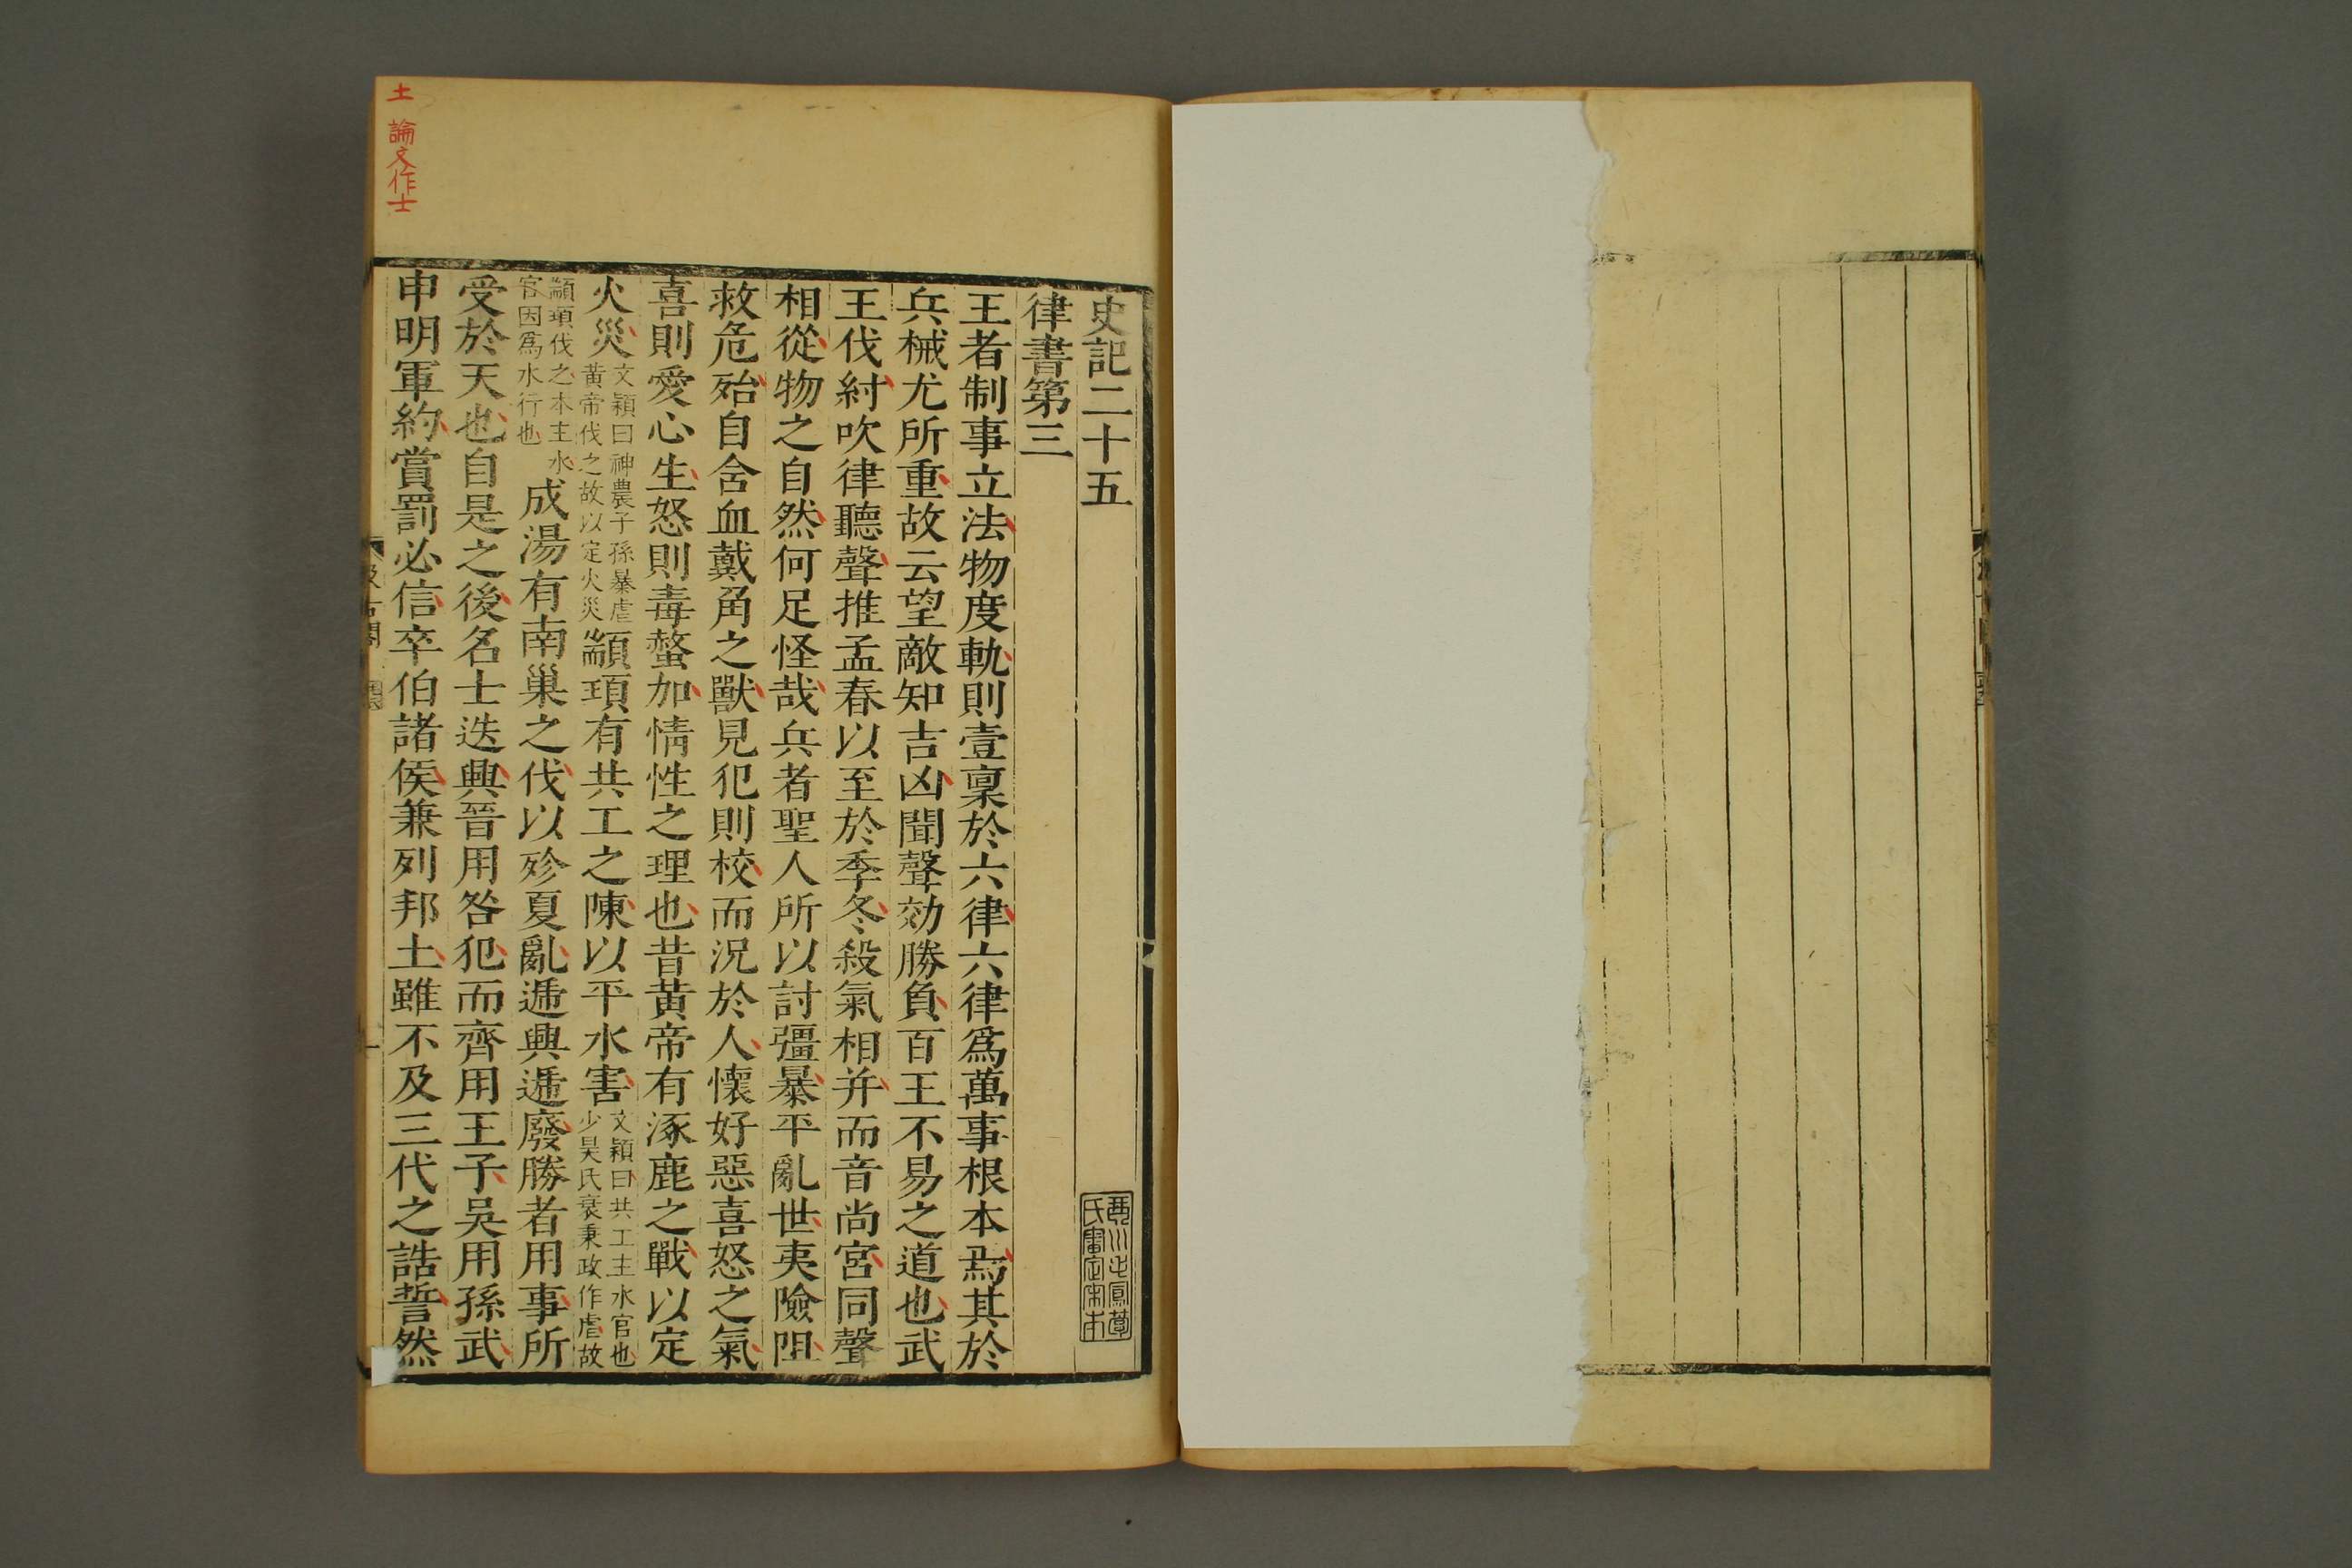 史記二十五
律書第三
王者制事立法物度軌則壹稟於六律六律爲萬事根本焉其於
兵械尤所重故云望敵知吉凶聞聲効勝負百王不易之道也武
王伐紂吹律聽聲推孟春以至於季冬殺氣相并而音尚宮同聲
相從物之自然何足怪哉兵者聖人所以討彊暴平亂世夷險阻
救危殆自含血戴角之獸見犯則校而況於人懷好惡喜怒之氣
喜則愛心生怒則毒螫加情性之理也昔黃帝有涿鹿之戰以定
火災文穎曰神農子孫暴虐黃帝伐之故以定火災顓頊有共工之陳以平水害文穎曰共工主水官也少昊氏衰秉政作虐故
顓頊伐之本主水官因爲水行也成湯有南巢之伐以殄夏亂遞興遞廢勝者用事所
受於天也自是之後名士迭興晉用咎犯而齊用王子吳用孫武
申明軍約賞罰必信卒伯諸侯兼列邦土雖不及三代之誥誓然
土 論文作士
汲古閣